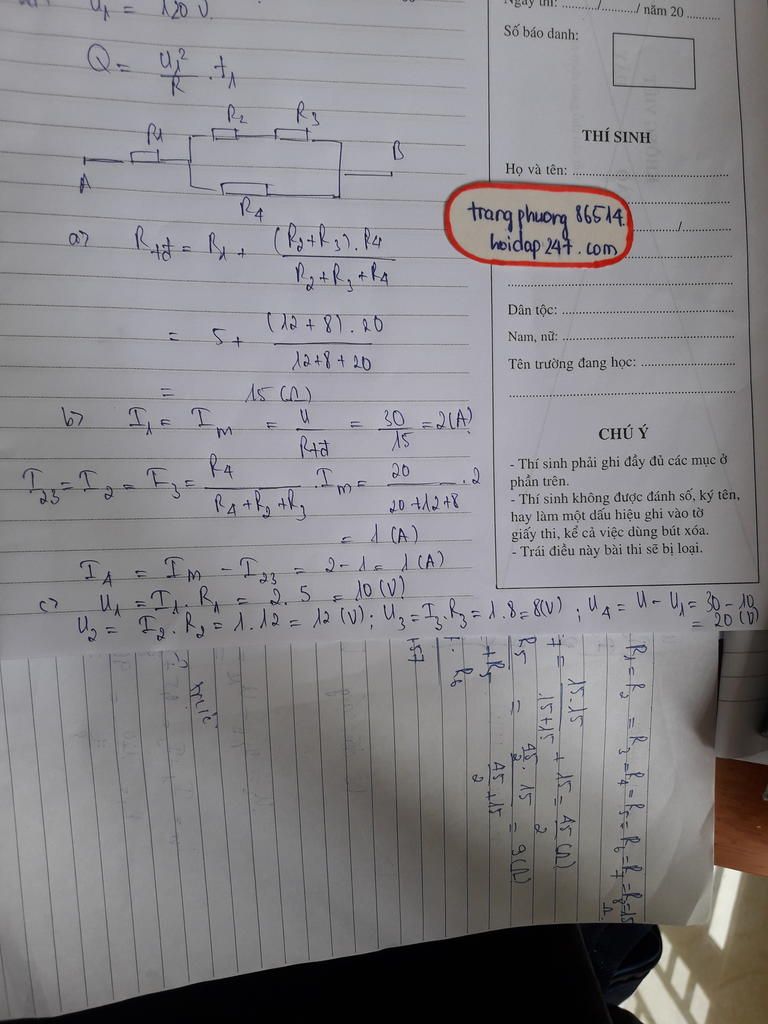 U₁ = 120 V.
Q = U₁²/R . t₁
R1
R2
R3
A
B
R4
a) Rtđ = R1 + (R2+R3).R4 / R2+R3+R4
= 5 + (12+8).20 / 12+8+20
= 15 (Ω)
b) I1 = Im = U/Rtđ = 30/15 = 2(A)
I23 = I2 = I3 = R4 / R4+R2+R3 . Im = 20 / 20+12+8 . 2
= 1 (A)
I4 = Im - I23 = 2 - 1 = 1 (A)
c) U1 = I1.R1 = 2.5 = 10 (V)
U2 = I2.R2 = 1.12 = 12 (V); U3 = I3.R3 = 1.8 = 8(V) ; U4 = U - U1 = 30 - 10
= 20 (V)
Ngày thi: ........./........./ năm 20 .........
Số báo danh:
THÍ SINH
Họ và tên:
trangphuong 86514.
hoidap247.com
Dân tộc:
Nam, nữ:
Tên trường đang học:
CHÚ Ý
- Thí sinh phải ghi đầy đủ các mục ở
phần trên.
- Thí sinh không được đánh số, ký tên,
hay làm một dấu hiệu ghi vào tờ
giấy thi, kể cả việc dùng bút xóa.
- Trái điều này bài thi sẽ bị loại.
15.15 / 15+15 + 15 = 45/2 (Ω)
45/2 . 15 / 45/2 + 15 = 9(Ω)